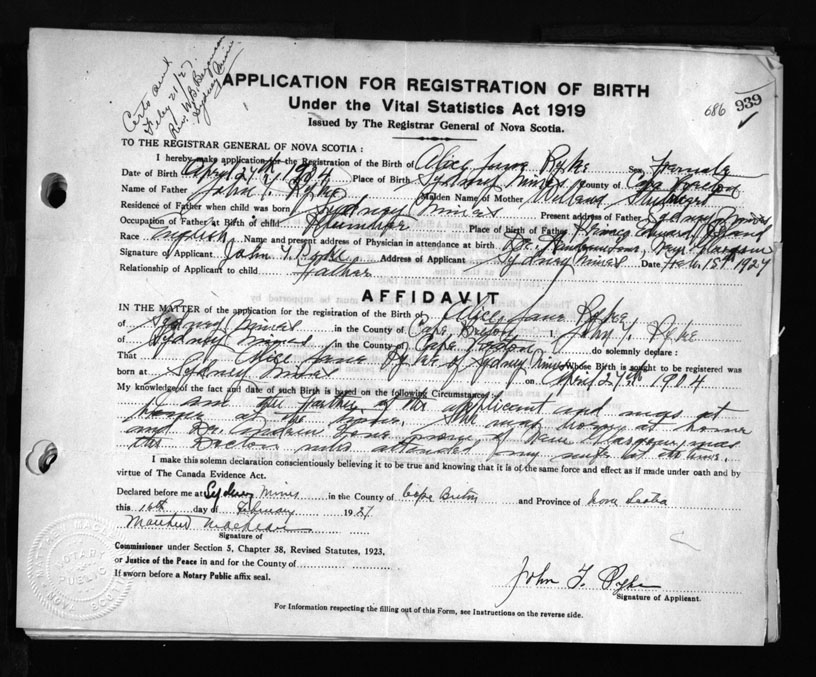 Certo send
Feby 21/27
Rev. W.B.
Sydney Mines
APPLICATION FOR REGISTRATION OF BIRTH
Under the Vital Statistics Act 1919
Issued by The Registrar General of Nova Scotia.
686 939
TO THE REGISTRAR GENERAL OF NOVA SCOTIA:
I hereby make application for the Registration of the Birth of Alice Jane Pyke Sex Female
Date of Birth April 27th, 1904 Place of Birth Sydney Mines County of Cape Breton
Name of Father John T. Pyke Maiden Name of Mother
Residence of Father when child was born Sydney Mines Present address of Father Sydney Mines
Occupation of Father at Birth of child Plumber Place of birth of Father Prince Edward Island
Race English Name and present address of Physician in attendance at birth Dr. New Glasgow
Signature of Applicant John T. Pyke Address of Applicant Sydney Mines Date Feb. 15th 1927
Relationship of Applicant to child Father
AFFIDAVIT
IN THE MATTER of the application for the registration of the Birth of Alice Jane Pyke
of Sydney Mines in the County of Cape Breton I, John T. Pyke
of Sydney Mines in the County of Cape Breton do solemnly declare:
That Alice Jane Pyke of Sydney Mines Whose Birth is sought to be registered was
born at Sydney Mines on April 27th 1904
My knowledge of the fact and date of such Birth is based on the following Circumstances:
I am the father of the applicant and was at
the time. She was born at home
and Dr. of New Glasgow, was
the Doctor who attended my wife at the time.
I make this solemn declaration conscientiously believing it to be true and knowing that it is of the same force and effect as if made under oath and by
virtue of The Canada Evidence Act.
Declared before me at Sydney Mines in the County of Cape Breton and Province of Nova Scotia
this 16th day of February 1927
Signature of
Commissioner under Section 5, Chapter 38, Revised Statutes, 1923.
or Justice of the Peace in and for the County of
If sworn before a Notary Public affix seal.
John T. Pyke
Signature of Applicant.
For Information respecting the filling out of this Form, see Instructions on the reverse side.
NOTARY
PUBLIC